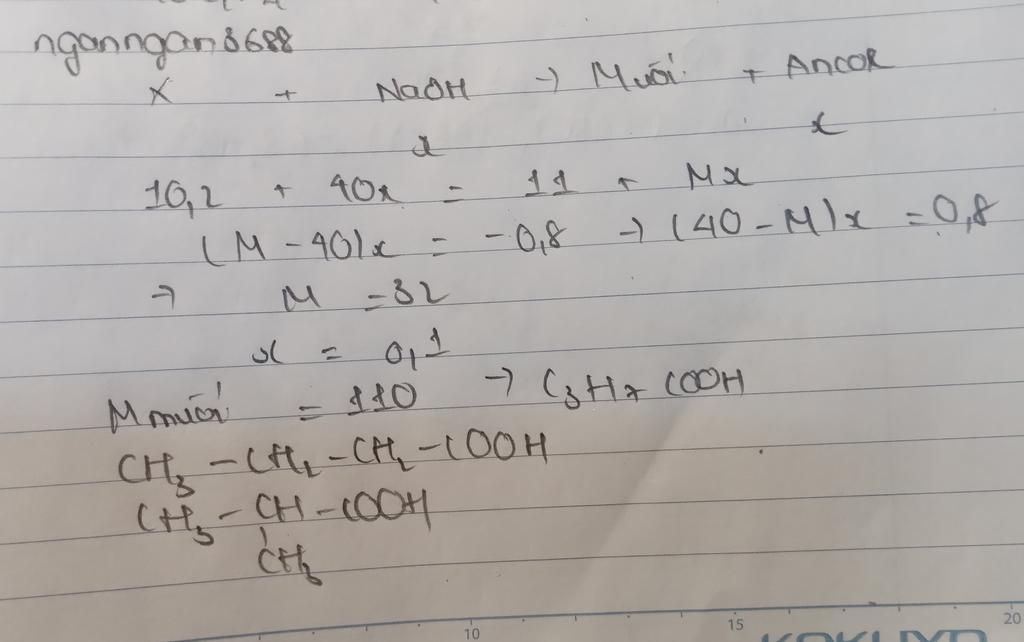 nganngan3688
X + NaOH → Muối + Ancol
x x
10,2 + 40x = 11 + Mx
(M - 40)x = -0,8 → (40 - M)x = 0,8
→ M = 32
x = 0,1
M muối = 110 → C3H7COOH
CH3 - CH2 - CH2 - COOH
CH3 - CH - COOH
CH3
10 15 20